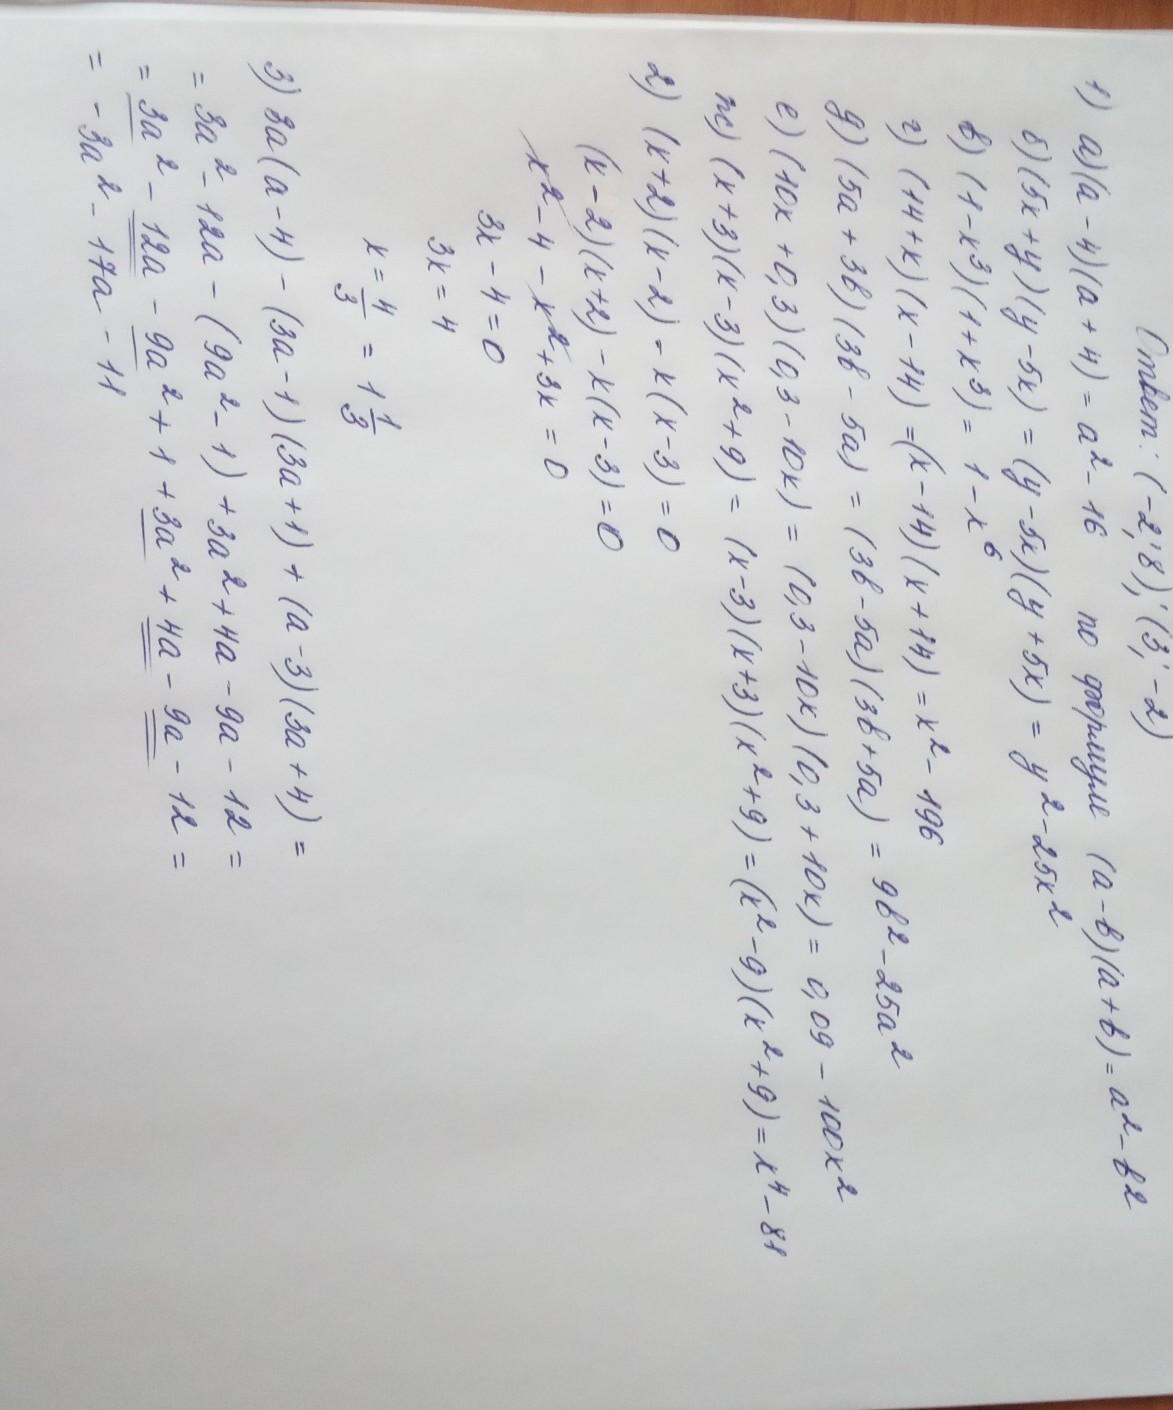 Ответ: (-2; 8); (3; -2)
1) а) (a - 4)(a + 4) = a² - 16 по формуле (a - b)(a + b) = a² - b²
б) (5x + y)(y - 5x) = (y - 5x)(y + 5x) = y² - 25x²
в) (1 - x³)(1 + x³) = 1 - x⁶
г) (14 + x)(x - 14) = (x - 14)(x + 14) = x² - 196
д) (5a + 3b)(3b - 5a) = (3b - 5a)(3b + 5a) = 9b² - 25a²
е) (10x + 0,3)(0,3 - 10x) = (0,3 - 10x)(0,3 + 10x) = 0,09 - 100x²
ж) (x + 3)(x - 3)(x² + 9) = (x - 3)(x + 3)(x² + 9) = (x² - 9)(x² + 9) = x⁴ - 81
2) (x + 2)(x - 2) - x(x - 3) = 0
(x - 2)(x + 2) - x(x - 3) = 0
x² - 4 - x² + 3x = 0
3x - 4 = 0
3x = 4
x = 4/3 = 1 1/3
3) 3a(a - 4) - (3a - 1)(3a + 1) + (a - 3)(3a + 4) =
= 3a² - 12a - (9a² - 1) + 3a² + 4a - 9a - 12 =
= 3a² - 12a - 9a² + 1 + 3a² + 4a - 9a - 12 =
= - 3a² - 17a - 11